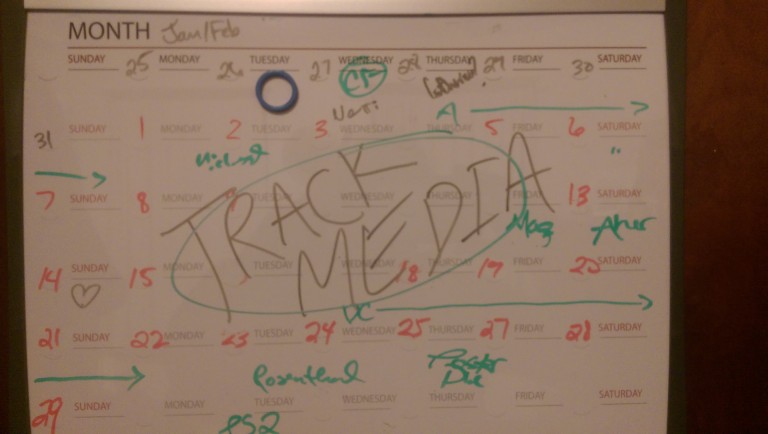 MONTH Jan/Feb
SUNDAY 25 MONDAY 26 TUESDAY 27 WEDNESDAY 28 THURSDAY 29 FRIDAY 30 SATURDAY
CF
31 SUNDAY 1 MONDAY 2 TUESDAY 3 WEDNESDAY THURSDAY 5 FRIDAY 6 SATURDAY
A
7 SUNDAY 8 MONDAY TUESDAY WEDNESDAY THURSDAY FRIDAY 13 SATURDAY
TRACK
MEDIA
14 SUNDAY 15 MONDAY TUESDAY WEDNESDAY 18 THURSDAY 19 FRIDAY 20 SATURDAY
DC
21 SUNDAY 22 MONDAY 23 TUESDAY 24 WEDNESDAY 25 THURSDAY 27 FRIDAY 28 SATURDAY
Rosenthal Poster
Due
29 SUNDAY MONDAY TUESDAY WEDNESDAY THURSDAY FRIDAY SATURDAY
PS2